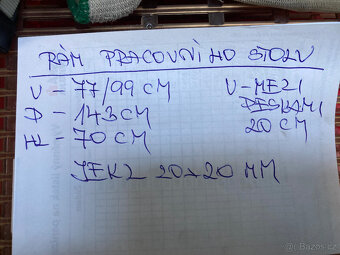 RÁM PRACOVNÍHO STOLU
V - 77/99 CM
D - 143 CM
HL - 70 CM
V - MEZI
DESKAMI
20 CM
JEKL 20x20 MM
Bazos.cz